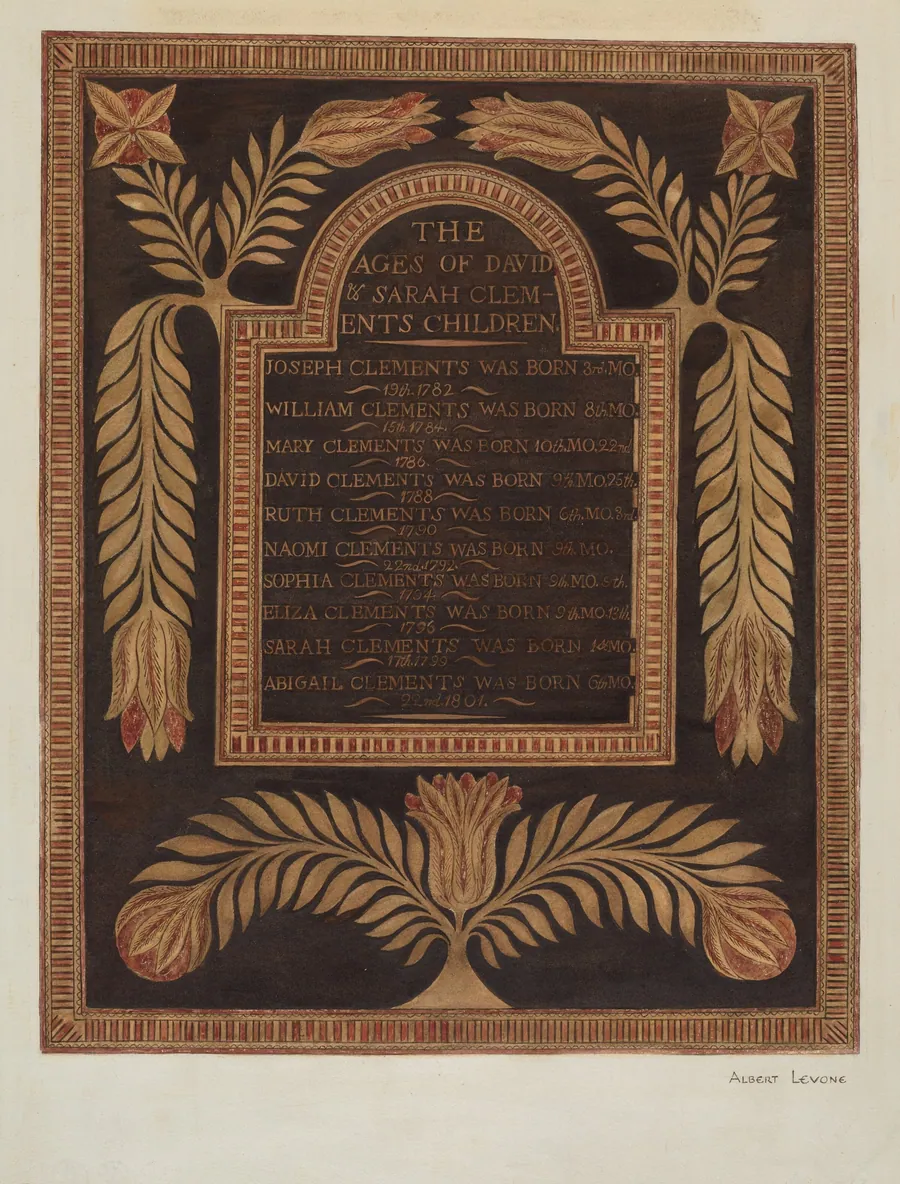 THE
AGES OF DAVID
& SARAH CLEM-
ENTS CHILDREN.
JOSEPH CLEMENTS WAS BORN 3rd.MO.
19th.1782
WILLIAM CLEMENTS WAS BORN 8th MO.
15th.1784.
MARY CLEMENTS WAS BORN 10th.MO.22nd
1786.
DAVID CLEMENTS WAS BORN 9th MO.25th.
1788
RUTH CLEMENTS WAS BORN 6th.MO.3rd.
1790
NAOMI CLEMENTS WAS BORN 9th.MO.
22nd.1792.
SOPHIA CLEMENTS WAS BORN 9th.MO.
1794.
ELIZA CLEMENTS WAS BORN 9th MO.13th.
1796
SARAH CLEMENTS WAS BORN 1st MO.
17th.1799
ABIGAIL CLEMENTS WAS BORN 6th MO.
22nd.1801.
ALBERT LEVONE